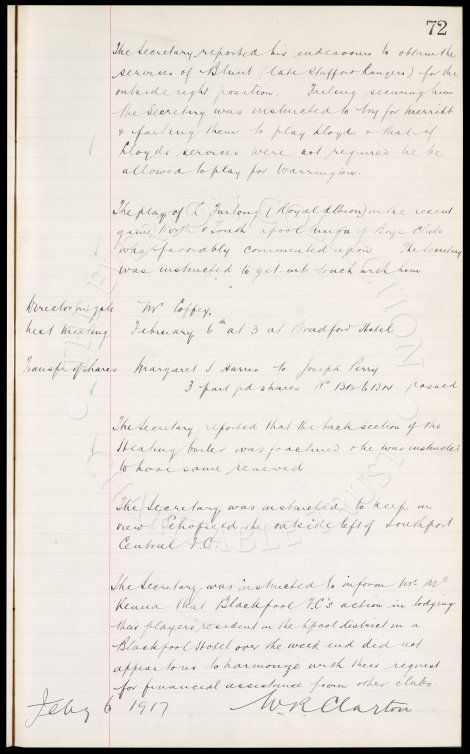 72
The Secretary reported his endeavours to obtain the
services of Blunt (late Stafford Rangers) for the
outside right position. Failing securing him
the Secretary was instructed to try for Merritt
& failing them to play Lloyds & that if
Lloyds services were not required he be
allowed to play for Warrington.
The play of L. Furlong (Royal Albion) in the recent
game North v South L'pool Union of Boys Clubs
was favorably commented upon The Secretary
was instructed to get into touch with him
Director for gate Mr Coffey.
Next Meeting February 6th at 3 at Bradford Hotel
Transfer of Shares Margaret S Harris to Joseph Perry
3 part pd shares No 1312 to 1314 passed
The Secretary reported that the back section of the
Heating boiler was fractured & he was instructed
to have same renewed
The Secretary was instructed to keep in
view Schofield the outside left of Southport
Central F.C.
The Secretary was instructed to inform Mr Mc
Kenna that Blackpool F.C's action in lodging
their players resident in the L'pool district in a
Blackpool Hotel over the week end did not
appear to us to harmonize with their request
for financial assistance from other clubs.
Feby 6 1917 W.R. Clayton